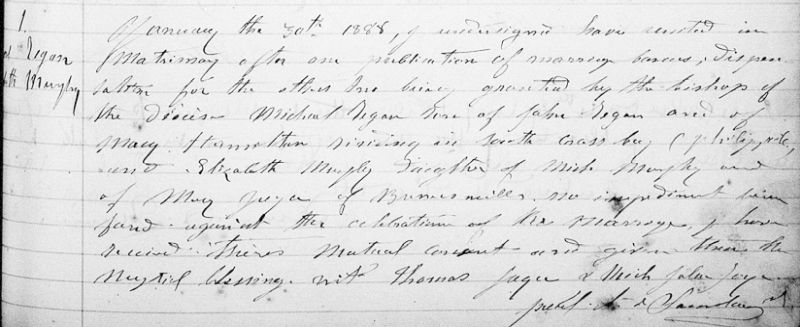 1.
Regan
Murphy
January the 30th 1888, I undersigned have united in
Matrimony after one publication of marriage bannes; dispen
sation for the other two being granted by the bishop of
the diocise Michael Regan Son of John Regan and of
Mary Hamilton risiding in south cross bay (
and Elizabeth Murphy Daughter of Mich Murphy and
of Mary Joyce of no impediment been
fund against the celebration of the Marriage, I have
received theirs mutual consent and given them the
Nuptial blessing. with Thomas & Mich John